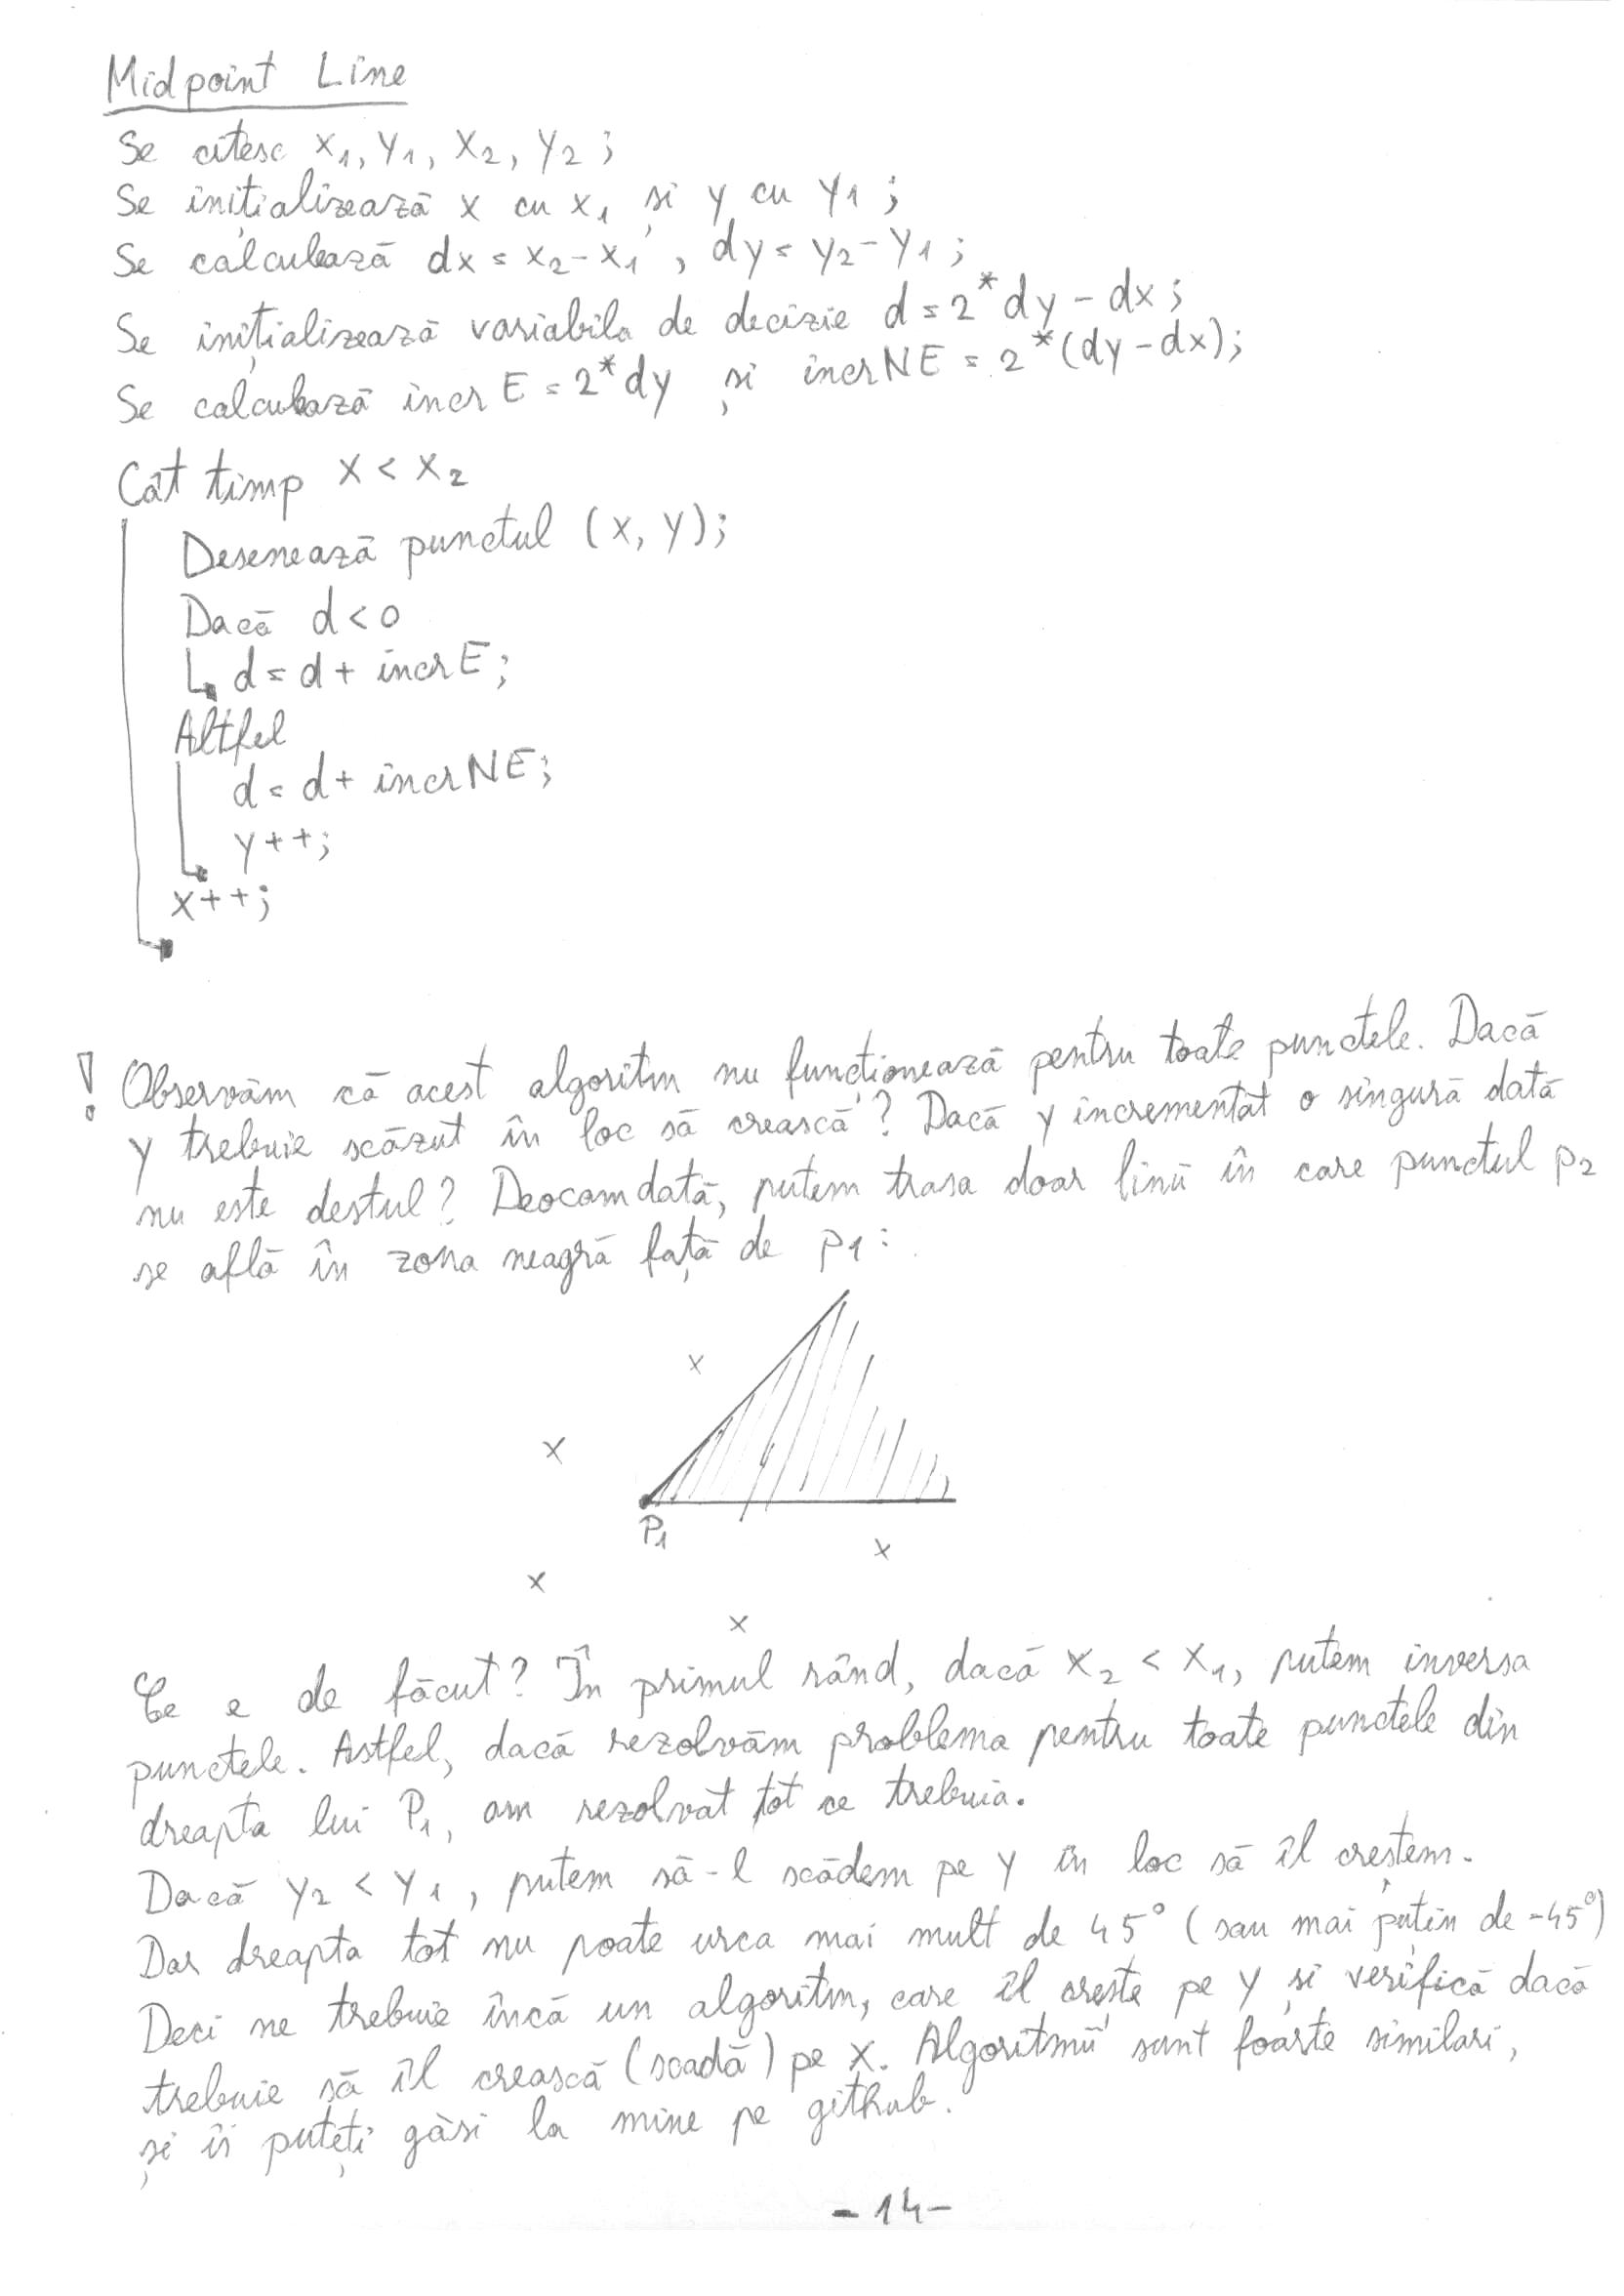 Midpoint Line
Se citesc x1, y1, x2, y2;
Se inițializează x cu x1 și y cu y1;
Se calculează dx = x2 - x1, dy = y2 - y1;
Se inițializează variabila de decizie d = 2*dy - dx;
Se calculează incrE = 2*dy și incrNE = 2*(dy - dx);
Cât timp x < x2
Desenează punctul (x, y);
Dacă d < 0
d = d + incrE;
Altfel
d = d + incrNE;
y++;
x++;
! Observăm că acest algoritm nu funcționează pentru toate punctele. Dacă
y trebuie scăzut în loc să crească? Dacă y incrementat o singură dată
nu este destul? Deocamdată, putem trasa doar linii în care punctul p2
se află în zona neagră față de p1:
x
x
P1
x
x
x
Ce e de făcut? În primul rând, dacă x2 < x1, putem inversa
punctele. Astfel, dacă rezolvăm problema pentru toate punctele din
dreapta lui P1, am rezolvat tot ce trebuia.
Dacă y2 < y1, putem să-l scădem pe y în loc să îl creștem.
Dar dreapta tot nu poate urca mai mult de 45° (sau mai puțin de -45°)
Deci ne trebuie încă un algoritm, care îl crește pe y și verifică dacă
trebuie să îl crească (scadă) pe x. Algoritmii sunt foarte similari,
și îi puteți găsi la mine pe github.
- 14 -